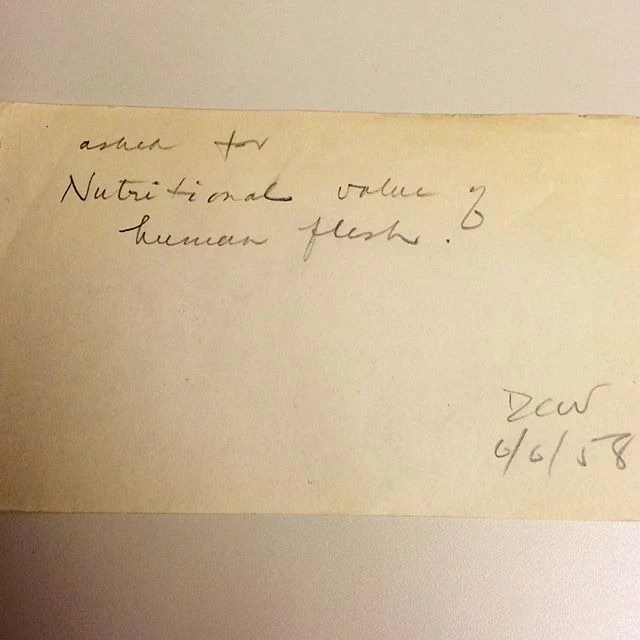 asked for
Nutritional value of
human flesh.
DCW
6/6/58